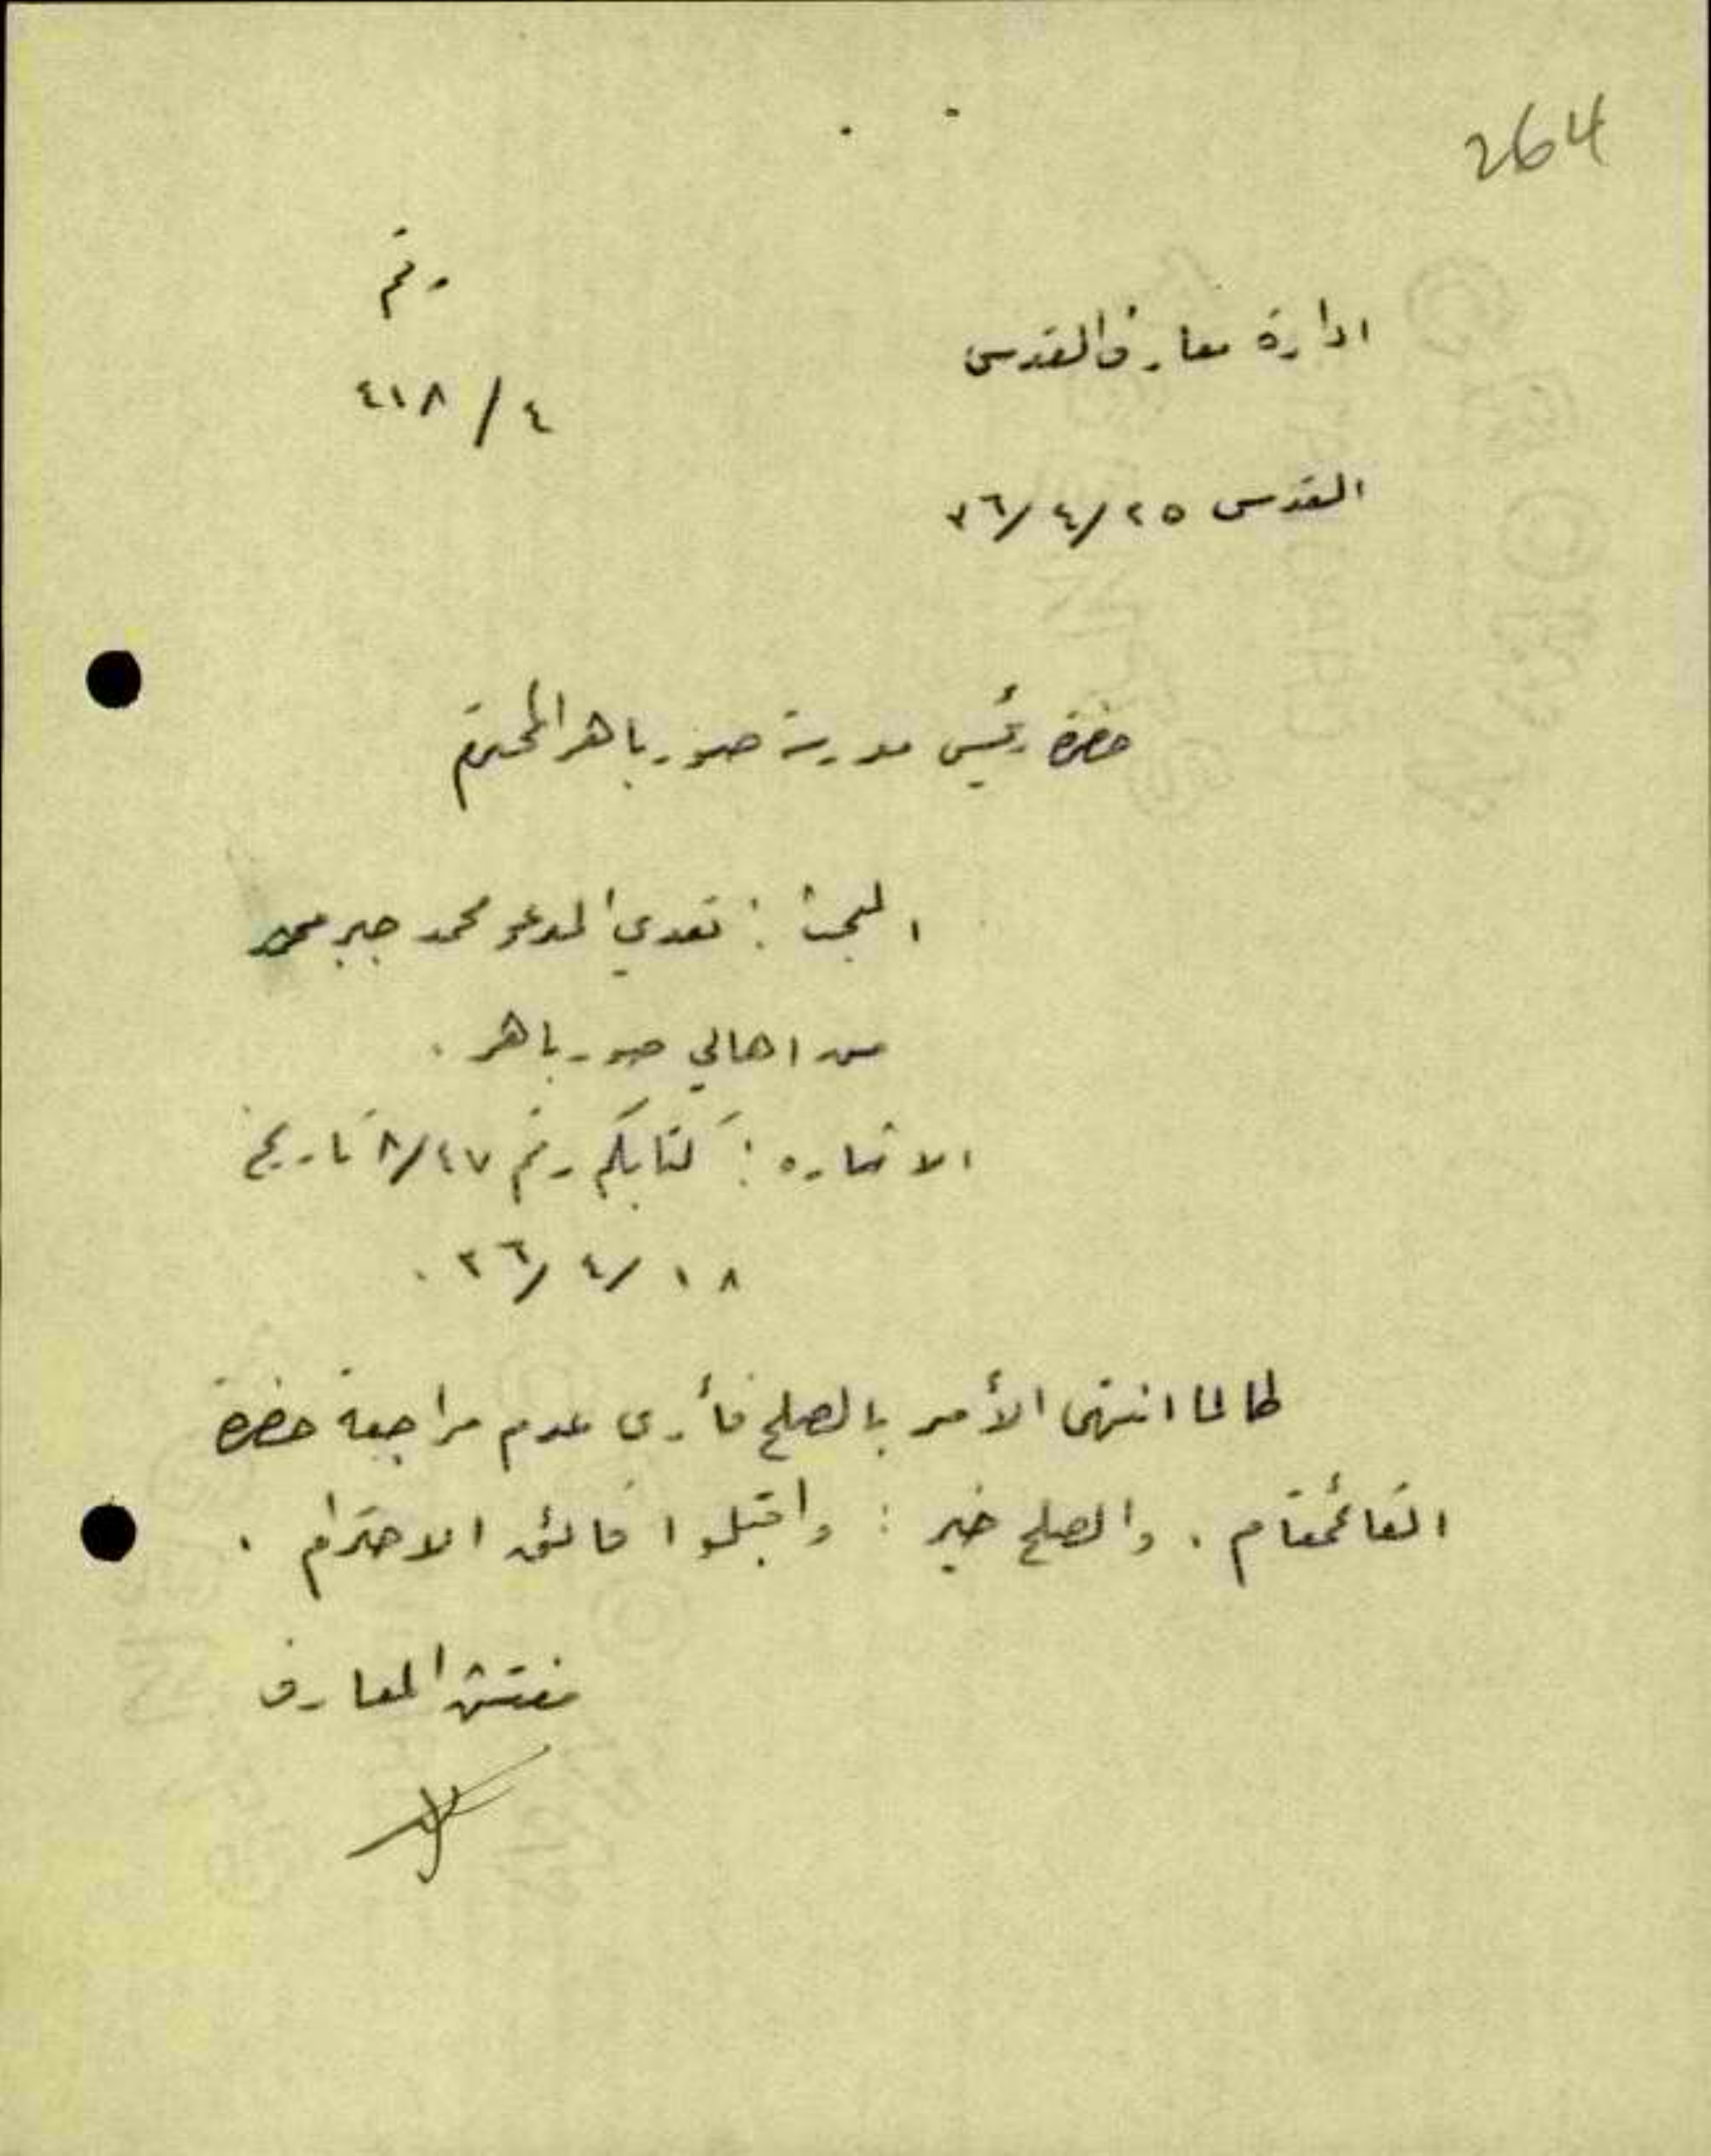 264
رقم
ادارة معارف القدس
٤ / ٤١٨
القدس ٢٥/٤/٣٦
حضرة رئيس مدرسة صور باهر المحترم
البحث : تعدي المدعو محمد جبر
من اهالي صور باهر .
الاشاره : كتابكم رقم ٨/٤٧ تاريخ
١٨/٤/٣٦ .
طالما انتهى الأمر بالصلح فأرى عدم مراجعة حضرة
القائمقام . والصلح خير : واقبلوا فائق الاحترام .
مفتش المعارف